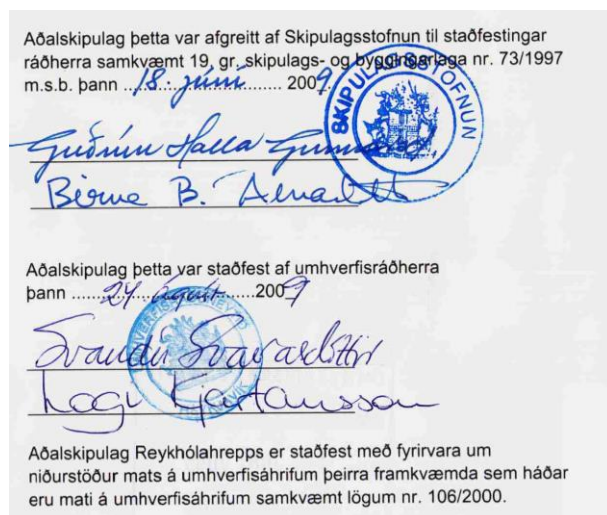 Aðalskipulag þetta var afgreitt af Skipulagsstofnun til staðfestingar
ráðherra samkvæmt 19, gr. skipulags- og byggingarlaga nr. 73/1997
m.s.b. þann ...18. júní............ 2009.
SKIPULAGSSTOFNUN
Guðrún Halla Gunnarsd.
Birna B. Árnadótt
Aðalskipulag þetta var staðfest af umhverfisráðherra
þann ......24. ágúst......2009
Svandís Svavarsdóttir
Kjartansson
Aðalskipulag Reykhólahrepps er staðfest með fyrirvara um
niðurstöður mats á umhverfisáhrifum þeirra framkvæmda sem háðar
eru mati á umhverfisáhrifum samkvæmt lögum nr. 106/2000.